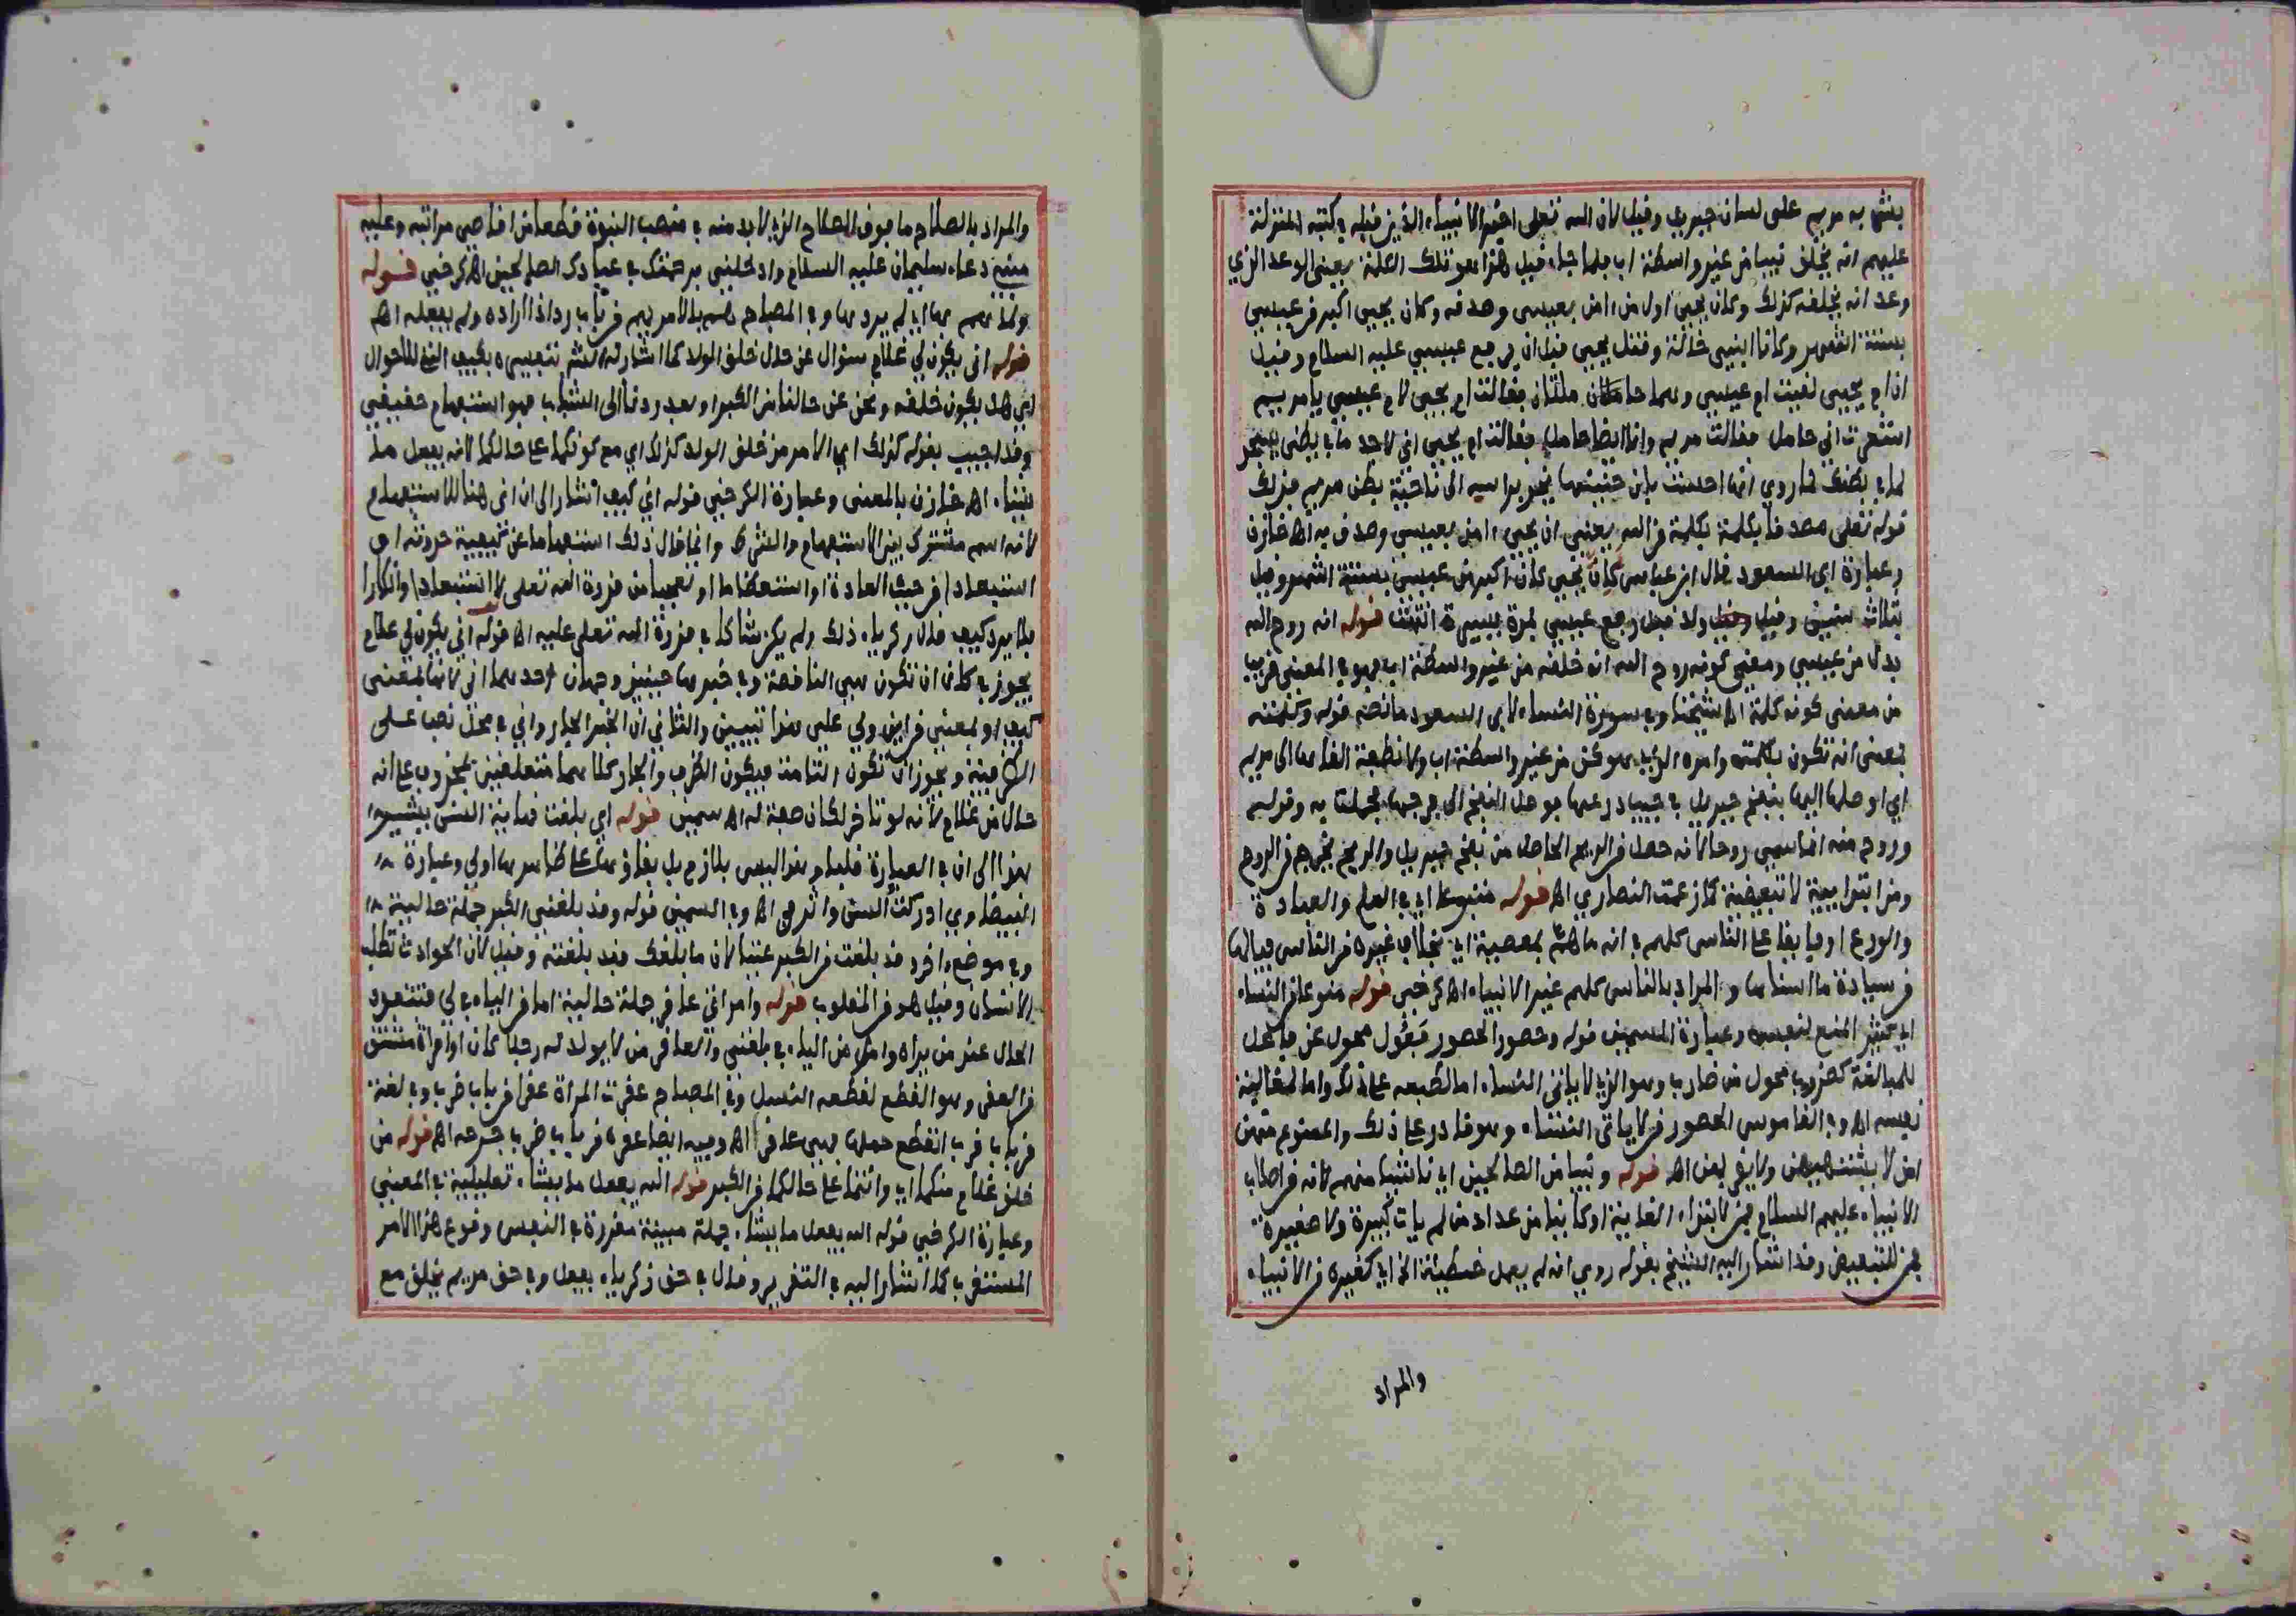 بشر به مريم على لسان جبريل وقيل لان الله تعلى اخبر الانبياء الذين قبله في كتبه المنزلة
عليهم انه يخلق نبيا من غير واسطة اب فلما جاء قيل هذا هو تلك الكلمة يعني الوعد الذي
وعد انه يخلقه كذلك وكان يحيى اول من امن بعيسى وصدقه وكان يحيى اكبر من عيسى
بستة اشهر وكانا ابني خالة وقتل يحيى قبل ان يرفع عيسى عليه السلام وقيل
ان ام يحيى لقيت ام عيسى وهما حاملتان فقالت ام يحيى لام عيسى يا مريم
اشعرت اني حامل فقالت مريم وانا ايضا حامل فقالت ام يحيى اني لاجد ما في بطني يسجد
لما في بطنك لما روي انها احست بان جنينها يخر براسه الى ناحية بطن مريم فذلك
قوله تعلى مصدقا بكلمة بكلمة من الله يعني ان يحيى امن بعيسى وصدق به اه خازن
وعبارة ابي السعود قال ابن عباس كان يحيى كان اكبر من عيسى بستة اشهر وقيل
بثلاث سنين وقيل ولد قبل رفع عيسى بمدة يسيرة انتهت قوله انه روح الله
بدل من عيسى ومعنى كونه روح الله انه خلقه من غير واسطة اب فهو في المعنى قريب
من معنى كونه كلمة اه شيخنا وفي سورة النساء لابي السعود ما نصه قوله وكلمته
بمعنى انه تكون بكلمته وامره الذي هو كن من غير واسطة اب ولا نطفة القاها الى مريم
اي اوصلها اليها بنفخ جبريل في جيب درعها فوصل النفخ الى فرجها فحملت به وقوله
وروح منه انما سمي روحا لانه حصل من الريح الحاصل من نفخ جبريل والريح يخرج من الروح
ومن ابتدايية لا تبعيضية كما زعمت النصاري اه قوله متبوعا اي في العلم والعبادة
والورع اوفايقا على الناس كلهم في انه ما هم بمعصية اي بخلاف غيره من الناس فيالها
من سيادة ما اسناها والمراد بالناس كلهم غير الانبياء اه كرخي قوله ممنوعا من النساء
اي كثير المنع لنفسه وعبارة السمين قوله وحصورا الحصور فعول محول عن فاعل
للمبالغة كضروب محول من ضارب وهو الذي لا ياتي النساء اما لطبعه على ذلك واما لمغالبة
نفسه اه وفي القاموس الحصور من لا ياتي النساء وهو قادر على ذلك والممنوع منهن
او من لا يشتهيهن ولا يقربهن اه قوله ونبيا من الصالحين اي ناشيا منهم لانه من اصلاب
الانبياء عليهم السلام فمن لابتداء الغاية او كاينا من عداد من لم يات كبيرة ولا صغيرة
فمن للتبعيض وقد اشار اليه الشيخ بقوله روي انه لم يعمل خطيئة الخ اي كغيره من الانبياء
والمراد
والمراد بالصلاح ما فوق الصلاح الذي لا بد منه في منصب النبوة قطعا من اقاصي مراتبه وعليه
مبنى دعاء سليمان عليه السلام وادخلني برحمتك في عبادك الصالحين اه كرخي قوله
ولم يهم بها اي لم يردها وفي المصباح هم بالامر يهم من باب رد اذا اراده ولم يفعله اه
قوله انى يكون لي غلام سؤال عن حال خلق الولد كما اشار له الشارح بتفسيره بكيف الخ للاحوال
اي هل يكون خلقه ونحن على حالنا من الكبر او بعد ردنا الى الشباب فهو استفهام حقيقي
وقد اجيب بقوله كذلك اي الامر من خلق الولد كذلك اي مع كونكما على حالكما لانه يفعل ما
يشاء اه خازن بالمعنى وعبارة الكرخي قوله اني كيف اشار الى ان انى هنا للاستفهام
لانه اسم مشترك بين الاستفهام والشرط وانما قال ذلك استفهاما عن كيفية حدوثه او
استبعادا من حيث العادة او استعظاما او تعجبا من قدرة الله تعلى لا استبعادا وانكارا
فلا يرد كيف قال زكرياء ذلك ولم يكن شاكا في قدرة الله تعلى عليه اه قوله انى يكون لي غلام
يجوز في كان ان تكون هي الناقصة وفي خبرها حينئذ وجهان احدهما انى لانها بمعنى
كيف او بمعنى من اين ولي على هذا تبيين والثاني ان الخبر الجار وانى في محل نصب على
الظرفية ويجوز ان تكون التامة فيكون الظرف والجار كلاهما متعلقين بمحذوف على انه
حال من غلام لانه لو تاخر لكان صفة له اه سمين قوله اي بلغت نهاية السن يشير
بهذا الى ان في العبارة قلبا وهذا ليس بلازم بل بقاؤها على ظاهرها اولى وعبارة
البيضاوي ادركت السن واثر في اه وفي السمين قوله وقد بلغني الكبر جملة حالية
وفي موضع اخر وقد بلغت من الكبر عتيا لان ما بلغك فقد بلغته وقيل لان الحوادث تطلب
الانسان وقيل هو من المقلوب قوله وامراتي عاقر جملة حالية اما من الياء في لي فتتعدد
الحال عند من يراه واما من الياء في بلغني والعاقر من لا يولد له رجلا كان او امراة مشتق
من العقر وهو القطع لقطعه النسل وفي المصباح عقرت المراة عقرا من باب ضرب وفي لغة
من باب قرب انقطع حملها فهي عاقر اه وفيه ايضا عقره من باب ضرب جرحه اه قوله من
خلق غلام منكما اي وانتما على حالكما من الكبر قوله الله يفعل ما يشاء تعليلية في المعنى
وعبارة الكرخي قوله الله يفعل ما يشاء جملة مبينة مقررة في النفس وقوع هذا الامر
المستغرب كما اشار اليه في التقرير وقال في حق زكرياء يفعل وفي حق مريم يخلق مع